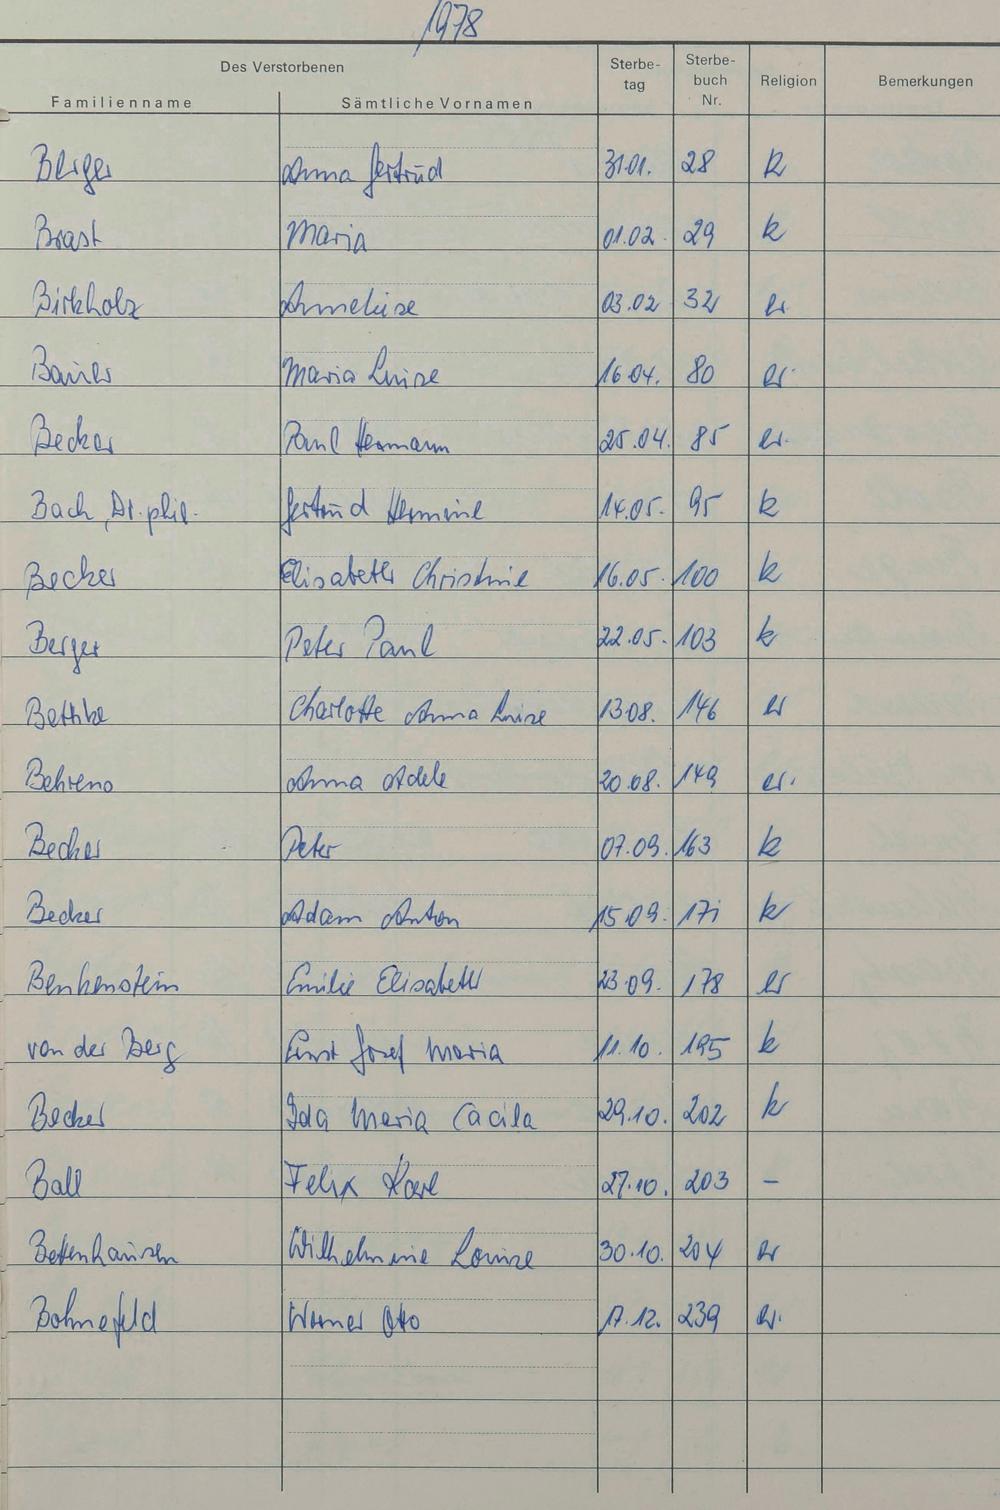 1978
Des Verstorbenen
Familienname Sämtliche Vornamen Sterbe-tag Sterbe-buch Nr. Religion Bemerkungen
Berger Anna Gertrud 31.01. 28 k
Brast Maria 01.02. 29 k
Birkholz Anneliese 03.02 32 ev.
Bauer Maria Luise 16.04. 80 ev.
Becker Paul Hermann 25.04. 85 ev.
Bach, Dr. phil. Gertrud Hermine 14.05. 95 k
Becker Elisabeth Christine 16.05. 100 k
Berger Peter Paul 22.05. 103 k
Bethke Charlotte Anna Luise 13.08. 146 ev
Behrend Anna Adele 20.08. 149 ev.
Becker Peter 07.09. 163 k
Becker Adam Anton 15.09. 171 k
Benkenstein Emilie Elisabeth 23.09. 178 ev
von der Berg Ernst Josef Maria 11.10. 195 k
Becker Ida Maria Cäcila 29.10. 202 k
Ball Felix Karl 27.10. 203 –
Bettenhausen Wilhelmine Louise 30.10. 204 ev
Bohnefeld Werner Otto 17.12. 239 ev.